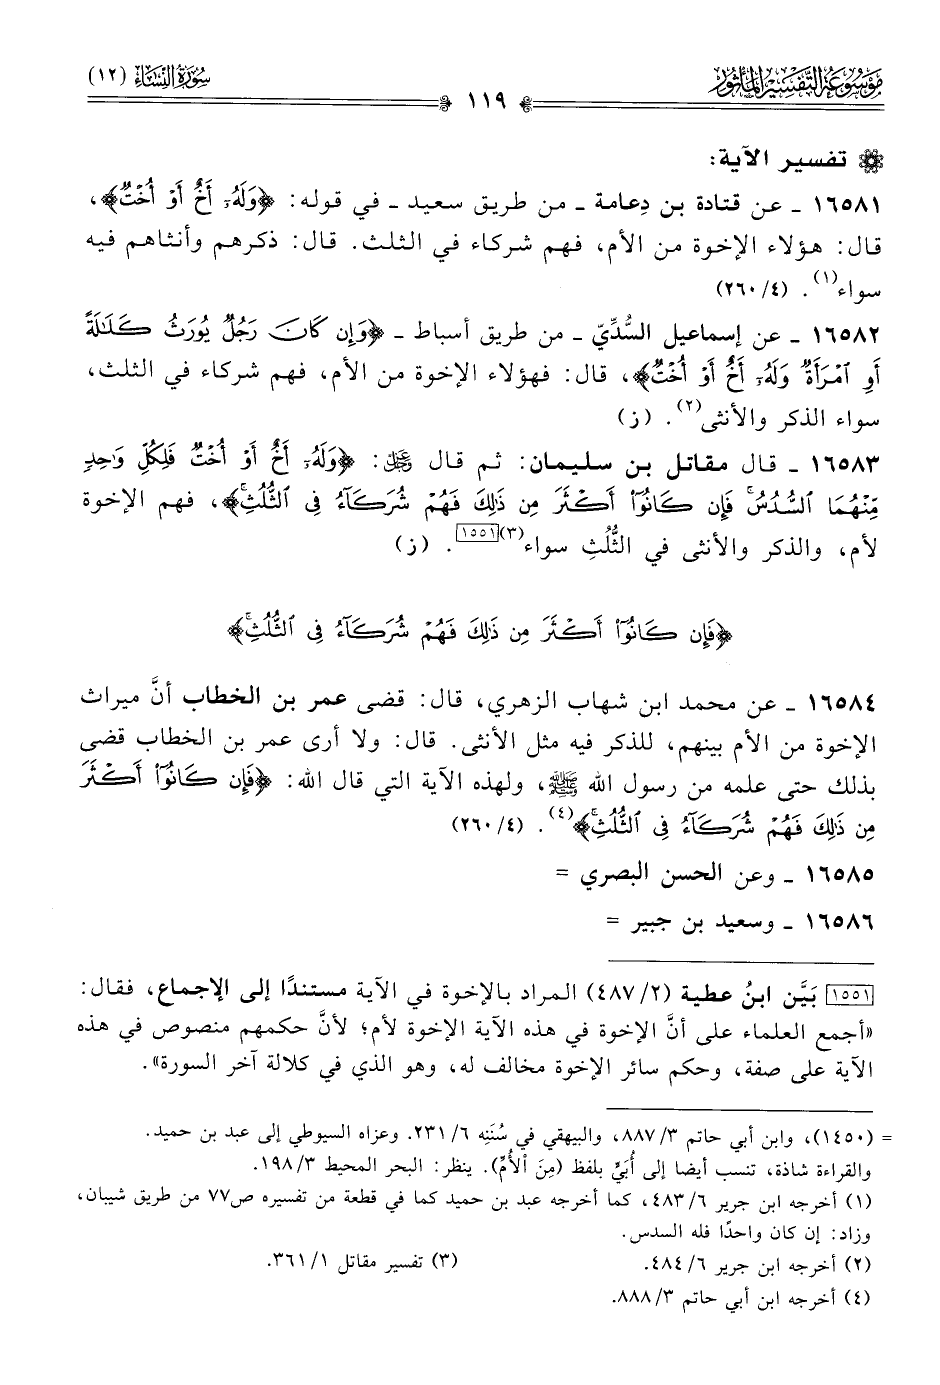 مَوْسُوعَةُ التَّفْسِيرِ المَأْثُورِ
١١٩
سُورَةُ النِّسَاءِ (١٢)
تفسير الآية:
١٦٥٨١ ـ عن قتادة بن دِعامة ـ من طريق سعيد ـ في قوله: ﴿وَلَهُۥٓ أَخٌ أَوْ أُخْتٌ﴾،
قال: هؤلاء الإخوة من الأم، فهم شركاء في الثلث. قال: ذكرهم وأنثاهم فيه
سواء(١). (٤/ ٢٦٠)
١٦٥٨٢ ـ عن إسماعيل السُّدِّيّ ـ من طريق أسباط ـ ﴿وَإِن كَانَ رَجُلٌ يُورَثُ كَلَٰلَةً
أَوِ ٱمْرَأَةٌ وَلَهُۥٓ أَخٌ أَوْ أُخْتٌ﴾، قال: فهؤلاء الإخوة من الأم، فهم شركاء في الثلث،
سواء الذكر والأنثى(٢). (ز)
١٦٥٨٣ ـ قال مقاتل بن سليمان: ثم قال ﷿: ﴿وَلَهُۥٓ أَخٌ أَوْ أُخْتٌ فَلِكُلِّ وَٰحِدٍ
مِّنْهُمَا ٱلسُّدُسُۚ فَإِن كَانُوٓا۟ أَكْثَرَ مِن ذَٰلِكَ فَهُمْ شُرَكَآءُ فِى ٱلثُّلُثِۚ﴾، فهم الإخوة
لأم، والذكر والأنثى في الثُّلُثِ سواء(٣)[١٥٥١]. (ز)
﴿فَإِن كَانُوٓا۟ أَكْثَرَ مِن ذَٰلِكَ فَهُمْ شُرَكَآءُ فِى ٱلثُّلُثِۚ﴾
١٦٥٨٤ ـ عن محمد ابن شهاب الزهري، قال: قضى عمر بن الخطاب أنَّ ميراث
الإخوة من الأم بينهم، للذكر فيه مثل الأنثى. قال: ولا أرى عمر بن الخطاب قضى
بذلك حتى علمه من رسول الله ﷺ، ولهذه الآية التي قال الله: ﴿فَإِن كَانُوٓا۟ أَكْثَرَ
مِن ذَٰلِكَ فَهُمْ شُرَكَآءُ فِى ٱلثُّلُثِۚ﴾(٤). (٤/ ٢٦٠)
١٦٥٨٥ ـ وعن الحسن البصري =
١٦٥٨٦ ـ وسعيد بن جبير =
[١٥٥١] بَيَّن ابنُ عطية (٢/ ٤٨٧) المراد بالإخوة في الآية مستندًا إلى الإجماع، فقال:
«أجمع العلماء على أنَّ الإخوة في هذه الآية الإخوة لأم؛ لأنَّ حكمهم منصوص في هذه
الآية على صفة، وحكم سائر الإخوة مخالف له، وهو الذي في كلالة آخر السورة».
= (١٤٥٠)، وابن أبي حاتم ٣/ ٨٨٧، والبيهقي في سُنَنِه ٦/ ٢٣١. وعزاه السيوطي إلى عبد بن حميد.
والقراءة شاذة، تنسب أيضا إلى أُبَيٍّ بلفظ (مِنَ الأُمِّ). ينظر: البحر المحيط ٣/ ١٩٨.
(١) أخرجه ابن جرير ٦/ ٤٨٣، كما أخرجه عبد بن حميد كما في قطعة من تفسيره ص٧٧ من طريق شيبان،
وزاد: إن كان واحدًا فله السدس.
(٢) أخرجه ابن جرير ٦/ ٤٨٤. (٣) تفسير مقاتل ١/ ٣٦١.
(٤) أخرجه ابن أبي حاتم ٣/ ٨٨٨.